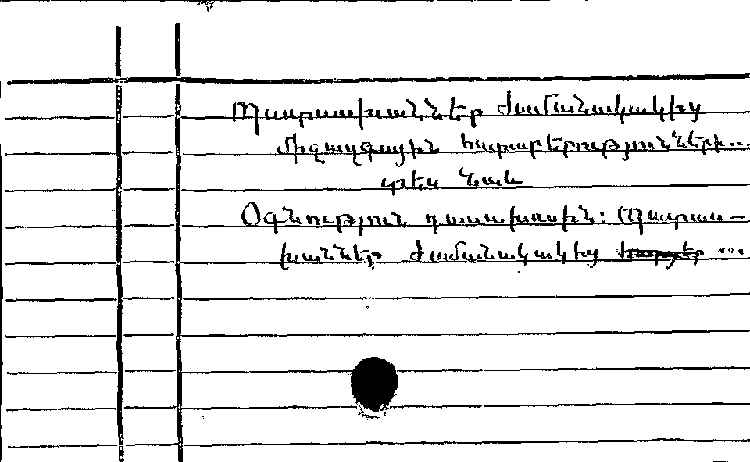 Պատասխաններ ժամանակակից
միջազգային հարաբերությունների...
տես նաև
Օգնություն դասախոսին: Պատաս–
խաններ ժամանակակից ...